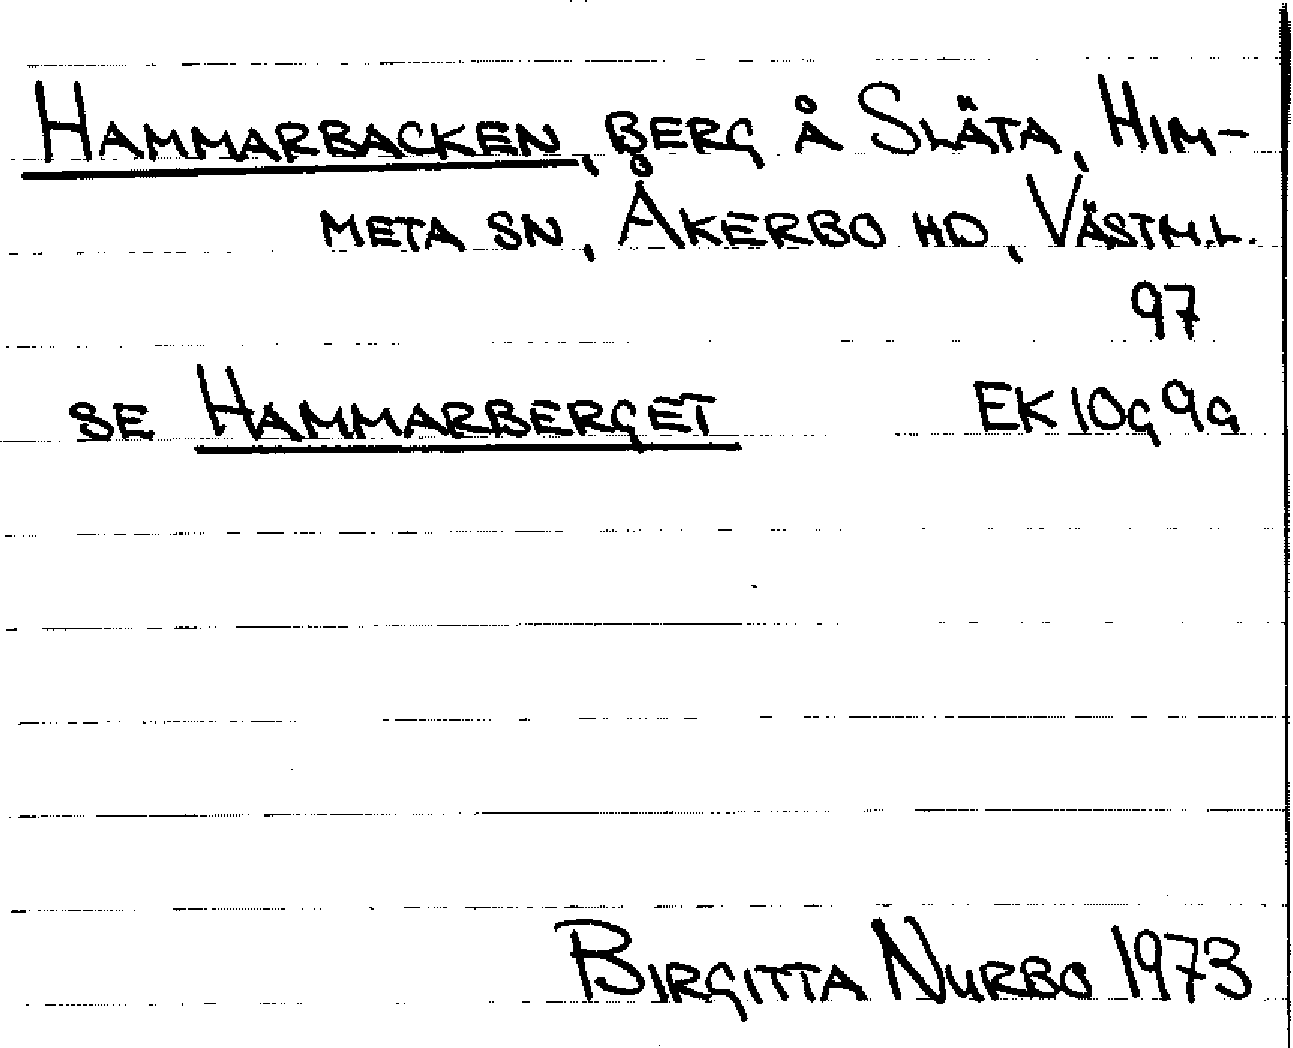 HAMMARBACKEN, BERG Å SLÄTA, HIM-
META SN, ÅKERBO HD, VÄSTM.L.
97
SE HAMMARBERGET EK 10G 9G
BIRGITTA NURBO 1973